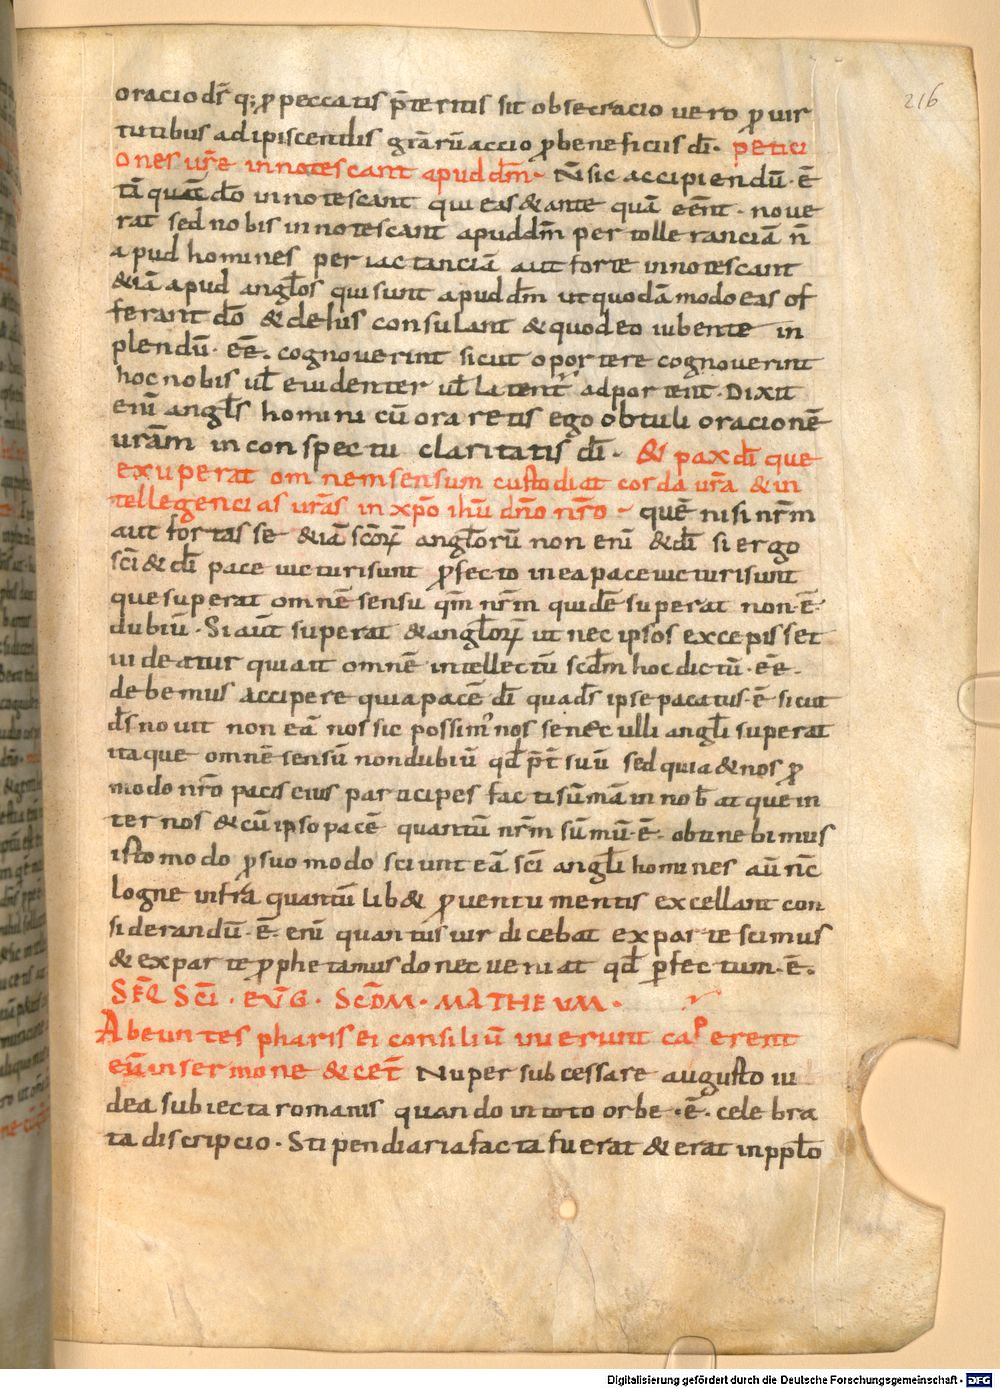 216
oracio dr̄ q; ꝓ peccatis p̄teritis sit obsecracio uero ꝓ uir
tutibus adipiscendis gr̄arū accio ꝓ beneficiis dī. petici
ones ur̄e innotescant apud dm̄. N̄ sic accipiendū ē
tā quā dō innotescant qui eas & ante quā eēnt. noue
rat sed nobis innotescant apud dm̄ per tollerancia n̄
apud homines per iactanciā aut forte innotescant
&iā apud angl̄os qui sunt apud dm̄ ut quodā modo eas of
ferant dō & de his consulant & quod eo iubente in
plendū eē. cognouerint sicut oportere cognouerint
hoc nobis ul̄ euidenter ul̄ latent̄ adportent. Dixit
enī angl̄s homini cū oraretis ego obtuli oracionē
urām in conspectu claritatis dī. &s pax dī que
exuperat omnem sensum custodiat corda ur̄a & in
tellegencias ur̄as in xp̄o ihū dn̄o nr̄o quē nisi nr̄m
aut fortasse &iā sc̄orꝝ angl̄orū non enī & dī si ergo
sc̄i & dī pace uicturi sunt ꝓfecto in ea pace uicturi sunt
que superat omnē sensū qm̄ nr̄m quidē superat non ē
dubiū. Si aūt superat & angl̄orꝝ ut nec ipsos excepisset
uideatur qui ait omnē intellectū scd̄m hoc dictū eē.
debemus accipere quia pacē dī qua ds̄ ipse pacatus ē sicut
ds̄ nouit non eā nos sic possim' nosse nec ulli angl̄i superat
itaque omnē sensū non dubiū qd̄ p̄t suū sed quia & nos ꝓ
modo nr̄o pacis eius participes facti sūmā in nob̄ atque in
ter nos & cū ipso pacē quantū nr̄m sūmū ē. obtinebimus
isto modo ꝓ suo modo sciunt eā sc̄i angl̄i homines aū nc̄
logne infra quantū lib& ꝓuentu mentis excellant con
siderandū ē enī quantus uir dicebat ex parte scimus
& ex parte ꝓphetamus donec ueniat qd̄ ꝑfectum ē.
SEQ̄ SC̄I. EVḠ. SCD̄M. MATHEVM.
Abeuntes pharisei consiliū inierunt caperent
eū in sermone & cet̄ Nuper sub cessare augusto iu
dea subiecta romanis quando in toto orbe ē celebra
ta discripcio. Stipendiaria facta fuerat & erat in ppl̄o
Digitalisierung gefördert durch die Deutsche Forschungsgemeinschaft - DFG